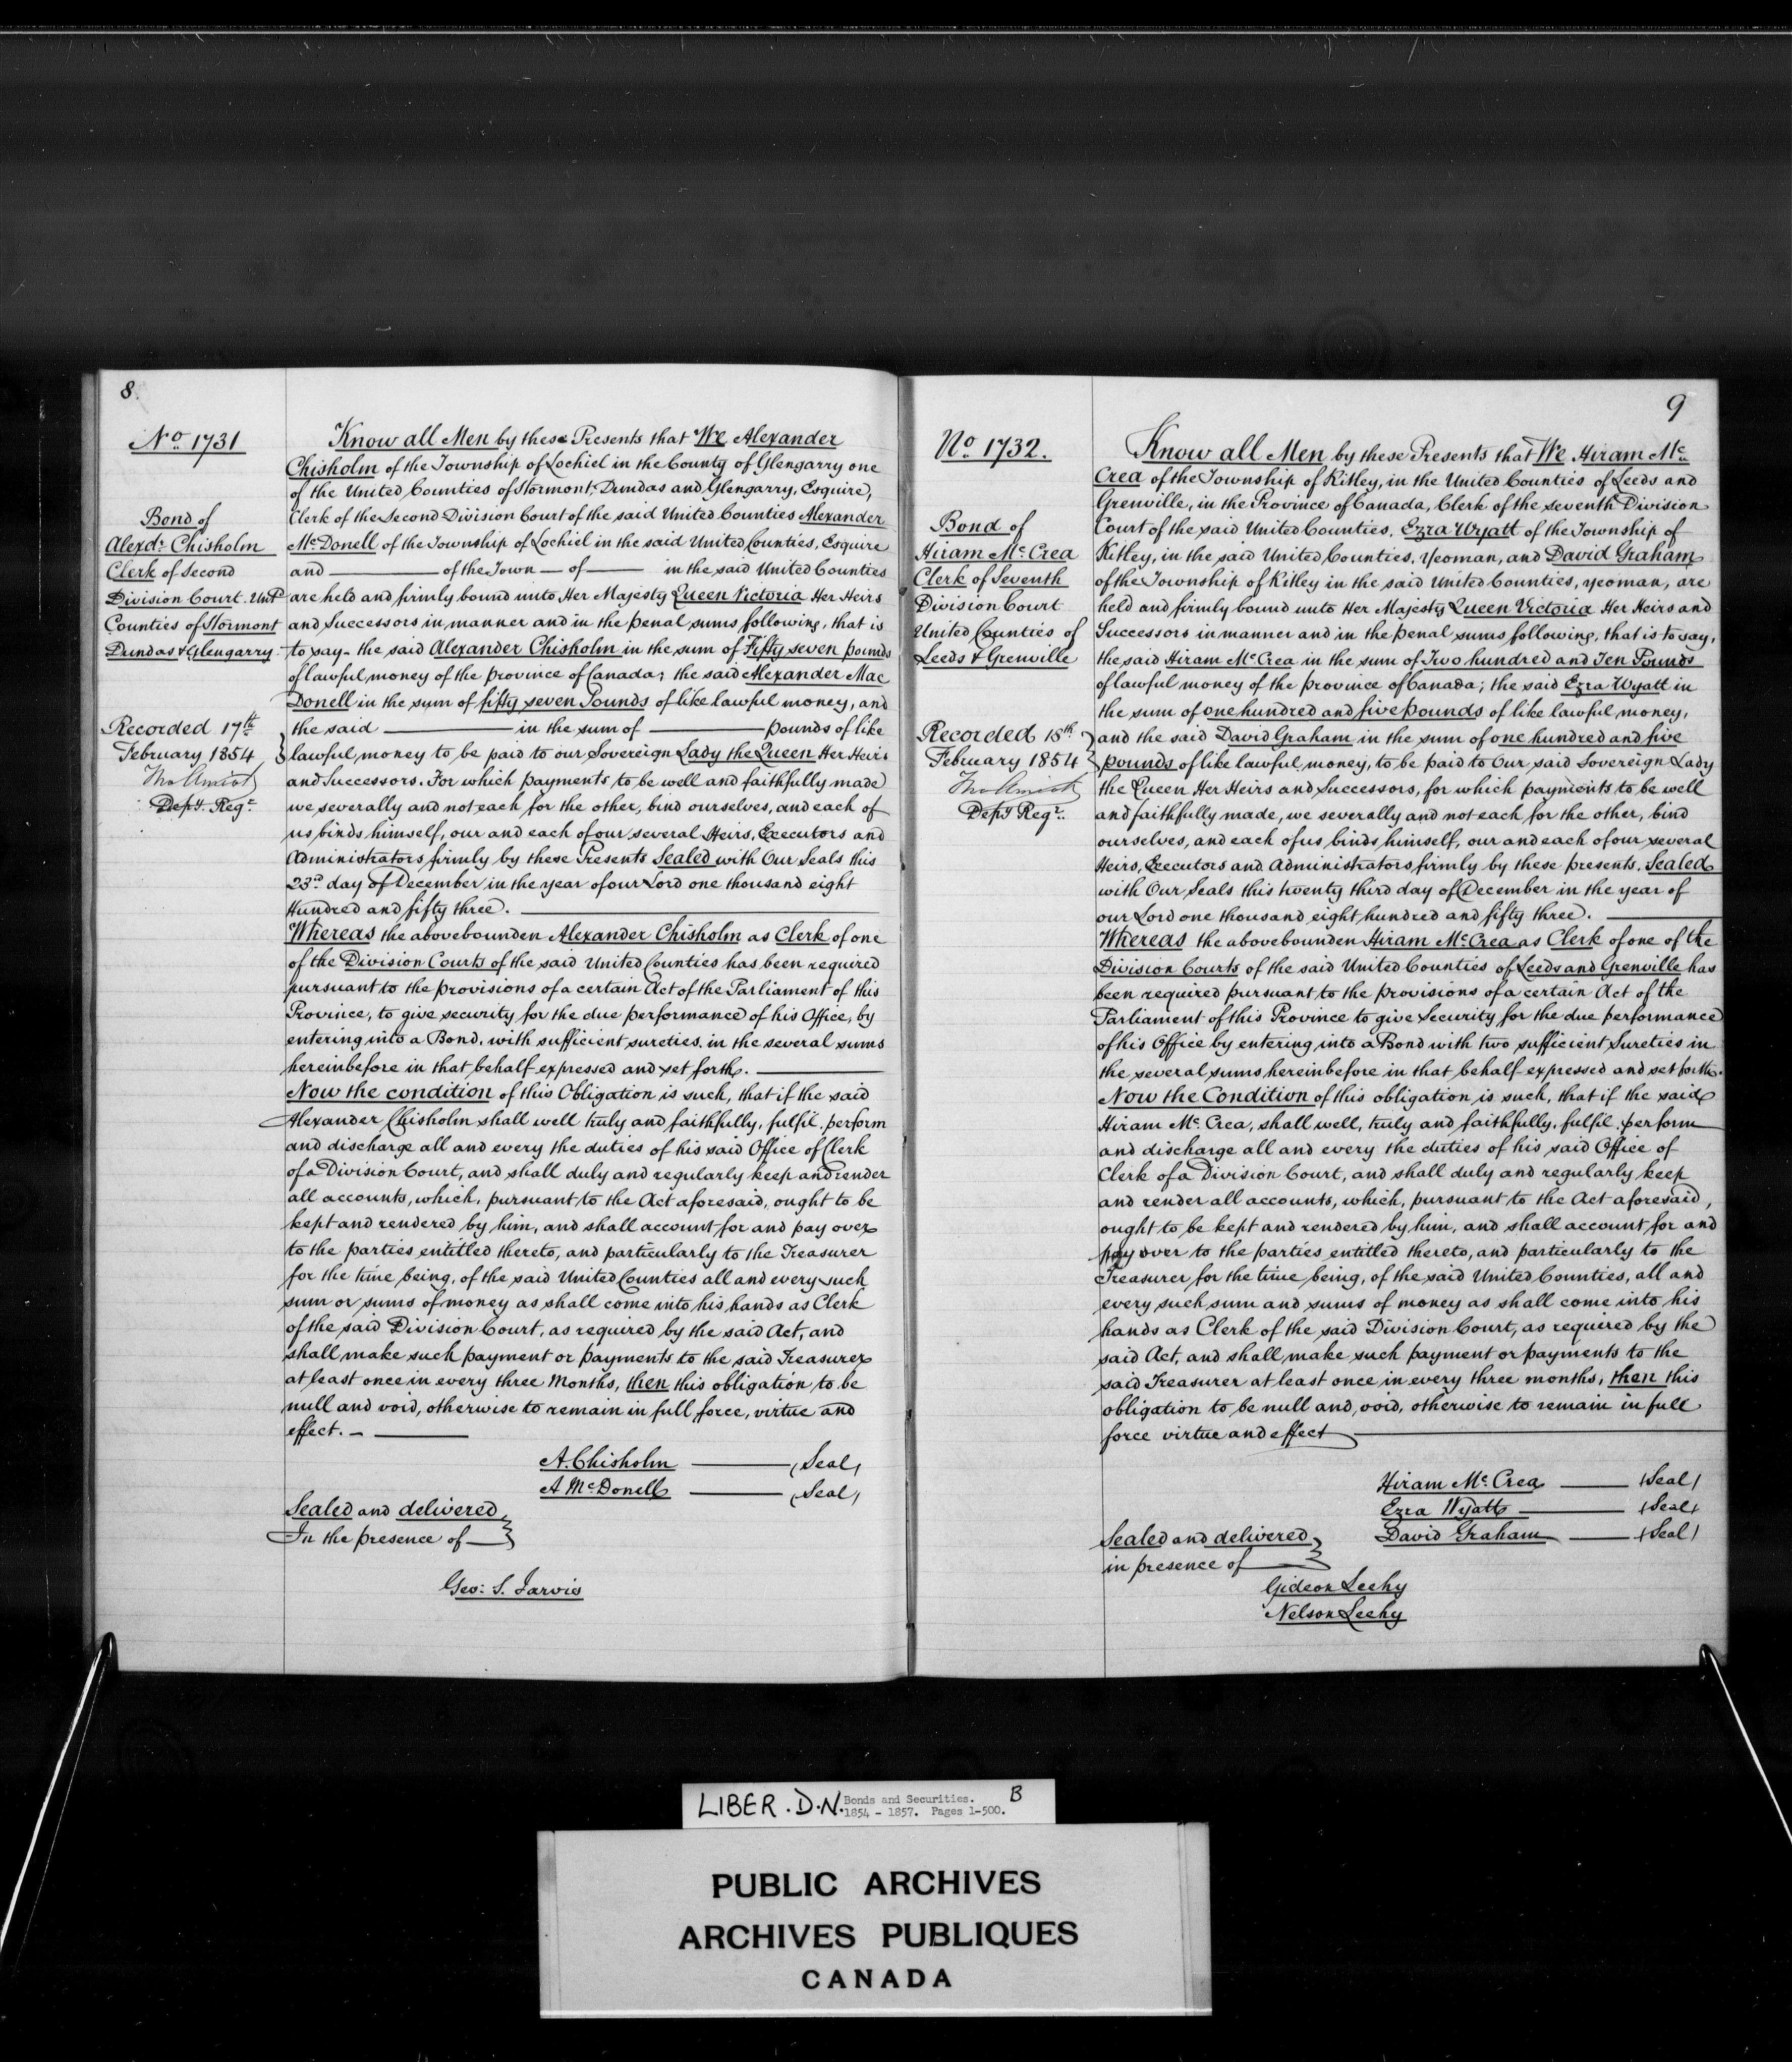 8.
No 1731
Bond of
Alexdr Chisholm
Clerk of Second
Division Court. Untd
Counties of Stormont
Dundas & Glengarry.
Recorded 17th
February 1854
Tho Amiot
Depy. Regr
Know all Men by these Presents that We Alexander
Chisholm of the Township of Lochiel in the County of Glengarry one
of the United Counties of Stormont, Dundas and Glengarry, Esquire,
Clerk of the Second Division Court of the said United Counties Alexander
McDonell of the Township of Lochiel in the said United Counties, Esquire
and ——— of the Town — of ——— in the said United Counties
are held and firmly bound unto Her Majesty Queen Victoria Her Heirs
and Successors in manner and in the penal sums following, that is
to say - the said Alexander Chisholm in the sum of Fifty seven pounds
of lawful money of the province of Canada; the said Alexander Mac
Donell in the sum of fifty seven Pounds of like lawful money, and
the said ——— in the sum of ——— pounds of like
lawful money to be paid to our Sovereign Lady the Queen Her Heirs
and Successors. For which payments to be well and faithfully made
we severally and not each for the other, bind ourselves, and each of
us binds himself, our and each of our several Heirs, Executors and
Administrators firmly by these Presents Sealed with Our Seals this
23rd day of December in the year of our Lord one thousand eight
Hundred and fifty three. ———
Whereas the abovebounden Alexander Chisholm as Clerk of one
of the Division Courts of the said United Counties has been required
pursuant to the provisions of a certain Act of the Parliament of this
Province, to give security for the due performance of his Office, by
entering into a Bond. with sufficient sureties. in the several sums
hereinbefore in that behalf expressed and set forth. ———
Now the condition of this Obligation is such, that if the said
Alexander Chisholm shall well truly and faithfully, fulfil. perform
and discharge all and every the duties of his said Office of Clerk
of a Division Court, and shall duly and regularly keep and render
all accounts, which, pursuant to the Act aforesaid, ought to be
kept and rendered by him, and shall account for and pay over
to the parties entitled thereto, and particularly to the Treasurer
for the time being, of the said United Counties all and every such
sum or sums of money as shall come into his hands as Clerk
of the said Division Court, as required by the said Act, and
shall make such payment or payments to the said Treasurer
at least once in every three Months, then this obligation to be
null and void, otherwise to remain in full force, virtue and
effect. - ———
A. Chisholm ——— (Seal)
A McDonell ——— (Seal)
Sealed and delivered
In the presence of —
Geo: S. Jarvis
9
No. 1732.
Bond of
Hiram McCrea
Clerk of Seventh
Division Court
United Counties of
Leeds & Grenville
Recorded 18th
February 1854
Tho Amiot
Depy Regr.
Know all Men by these Presents that We Hiram Mc
Crea of the Township of Kitley, in the United Counties of Leeds and
Grenville, in the Province of Canada, Clerk of the seventh Division
Court of the said United Counties, Ezra Wyatt of the Township of
Kitley, in the said United Counties, Yeoman, and David Graham
of the Township of Kitley in the said United Counties, yeoman, are
held and firmly bound unto Her Majesty Queen Victoria Her Heirs and
Successors in manner and in the penal sums following, that is to say,
the said Hiram McCrea in the sum of Two hundred and Ten Pounds
of lawful money of the province of Canada; the said Ezra Wyatt in
the sum of one hundred and five pounds of like lawful money,
and the said David Graham in the sum of one hundred and five
pounds of like lawful money, to be paid to Our said Sovereign Lady
the Queen Her Heirs and Successors, for which payments to be well
and faithfully made, we severally and not each for the other, bind
ourselves, and each of us binds himself, our and each of our several
Heirs, Executors and Administrators firmly by these presents. Sealed
with Our Seals this twenty third day of December in the year of
our Lord one thousand eight hundred and fifty three. ———
Whereas the abovebounden Hiram McCrea as Clerk of one of the
Division Courts of the said United Counties of Leeds and Grenville has
been required pursuant to the provisions of a certain Act of the
Parliament of this Province to give Security for the due performance
of his Office by entering into a Bond with two sufficient Sureties in
the several sums hereinbefore in that behalf expressed and set forth.
Now the Condition of this obligation is such, that if the said
Hiram McCrea, shall well, truly and faithfully, fulfil. perform
and discharge all and every the duties of his said Office of
Clerk of a Division Court, and shall duly and regularly keep
and render all accounts, which, pursuant to the Act aforesaid,
ought to be kept and rendered by him, and shall account for and
pay over to the parties entitled thereto, and particularly to the
Treasurer for the time being, of the said United Counties, all and
every such sum and sums of money as shall come into his
hands as Clerk of the said Division Court, as required by the
said Act, and shall make such payment or payments to the
said Treasurer at least once in every three months, then this
obligation to be null and void, otherwise to remain in full
force virtue and effect ———
Hiram McCrea ——— (Seal)
Ezra Wyatt ——— (Seal)
David Graham ——— (Seal)
Sealed and delivered
in presence of ———
Gideon Leehy
Nelson Leehy
LIBER . D.N. Bonds and Securities. B
1854 - 1857. Pages 1-500.
PUBLIC ARCHIVES
ARCHIVES PUBLIQUES
CANADA